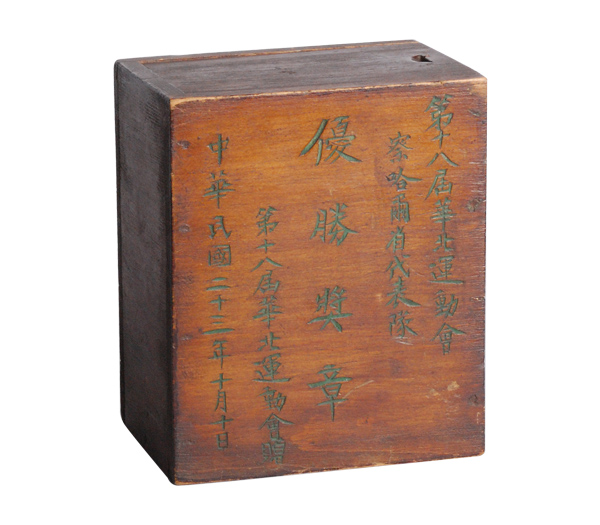 第十八届華北運動會
察哈爾省代表隊
優勝獎章
第十八届華北運動會
中華民國二十三年十月十日